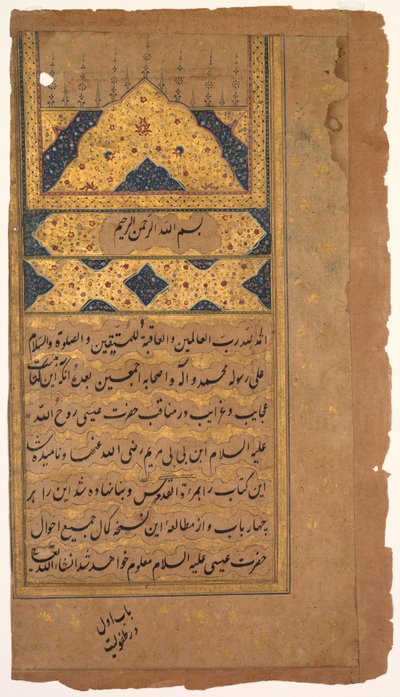 بسم الله الرحمن الرحیم
الحمد لله رب العالمین والعاقبة للمتقین والصلوة والسلام
علی رسوله محمد وآله واصحابه اجمعین بعده آنکه این
عجایب و غرایب در مناقب حضرت عیسی روح الله
علیه السلام ابن بی بی مریم رضی الله عنها و نامیده شد
این کتاب را مرآة القدس و بنا نهاده شد این را بر
چهار باب و از مطالعهٔ این نسخه کمال جمیع احوال
حضرت عیسی علیه السلام معلوم خواهد شد انشاء الله تعالی
باب اول
در طفولیت